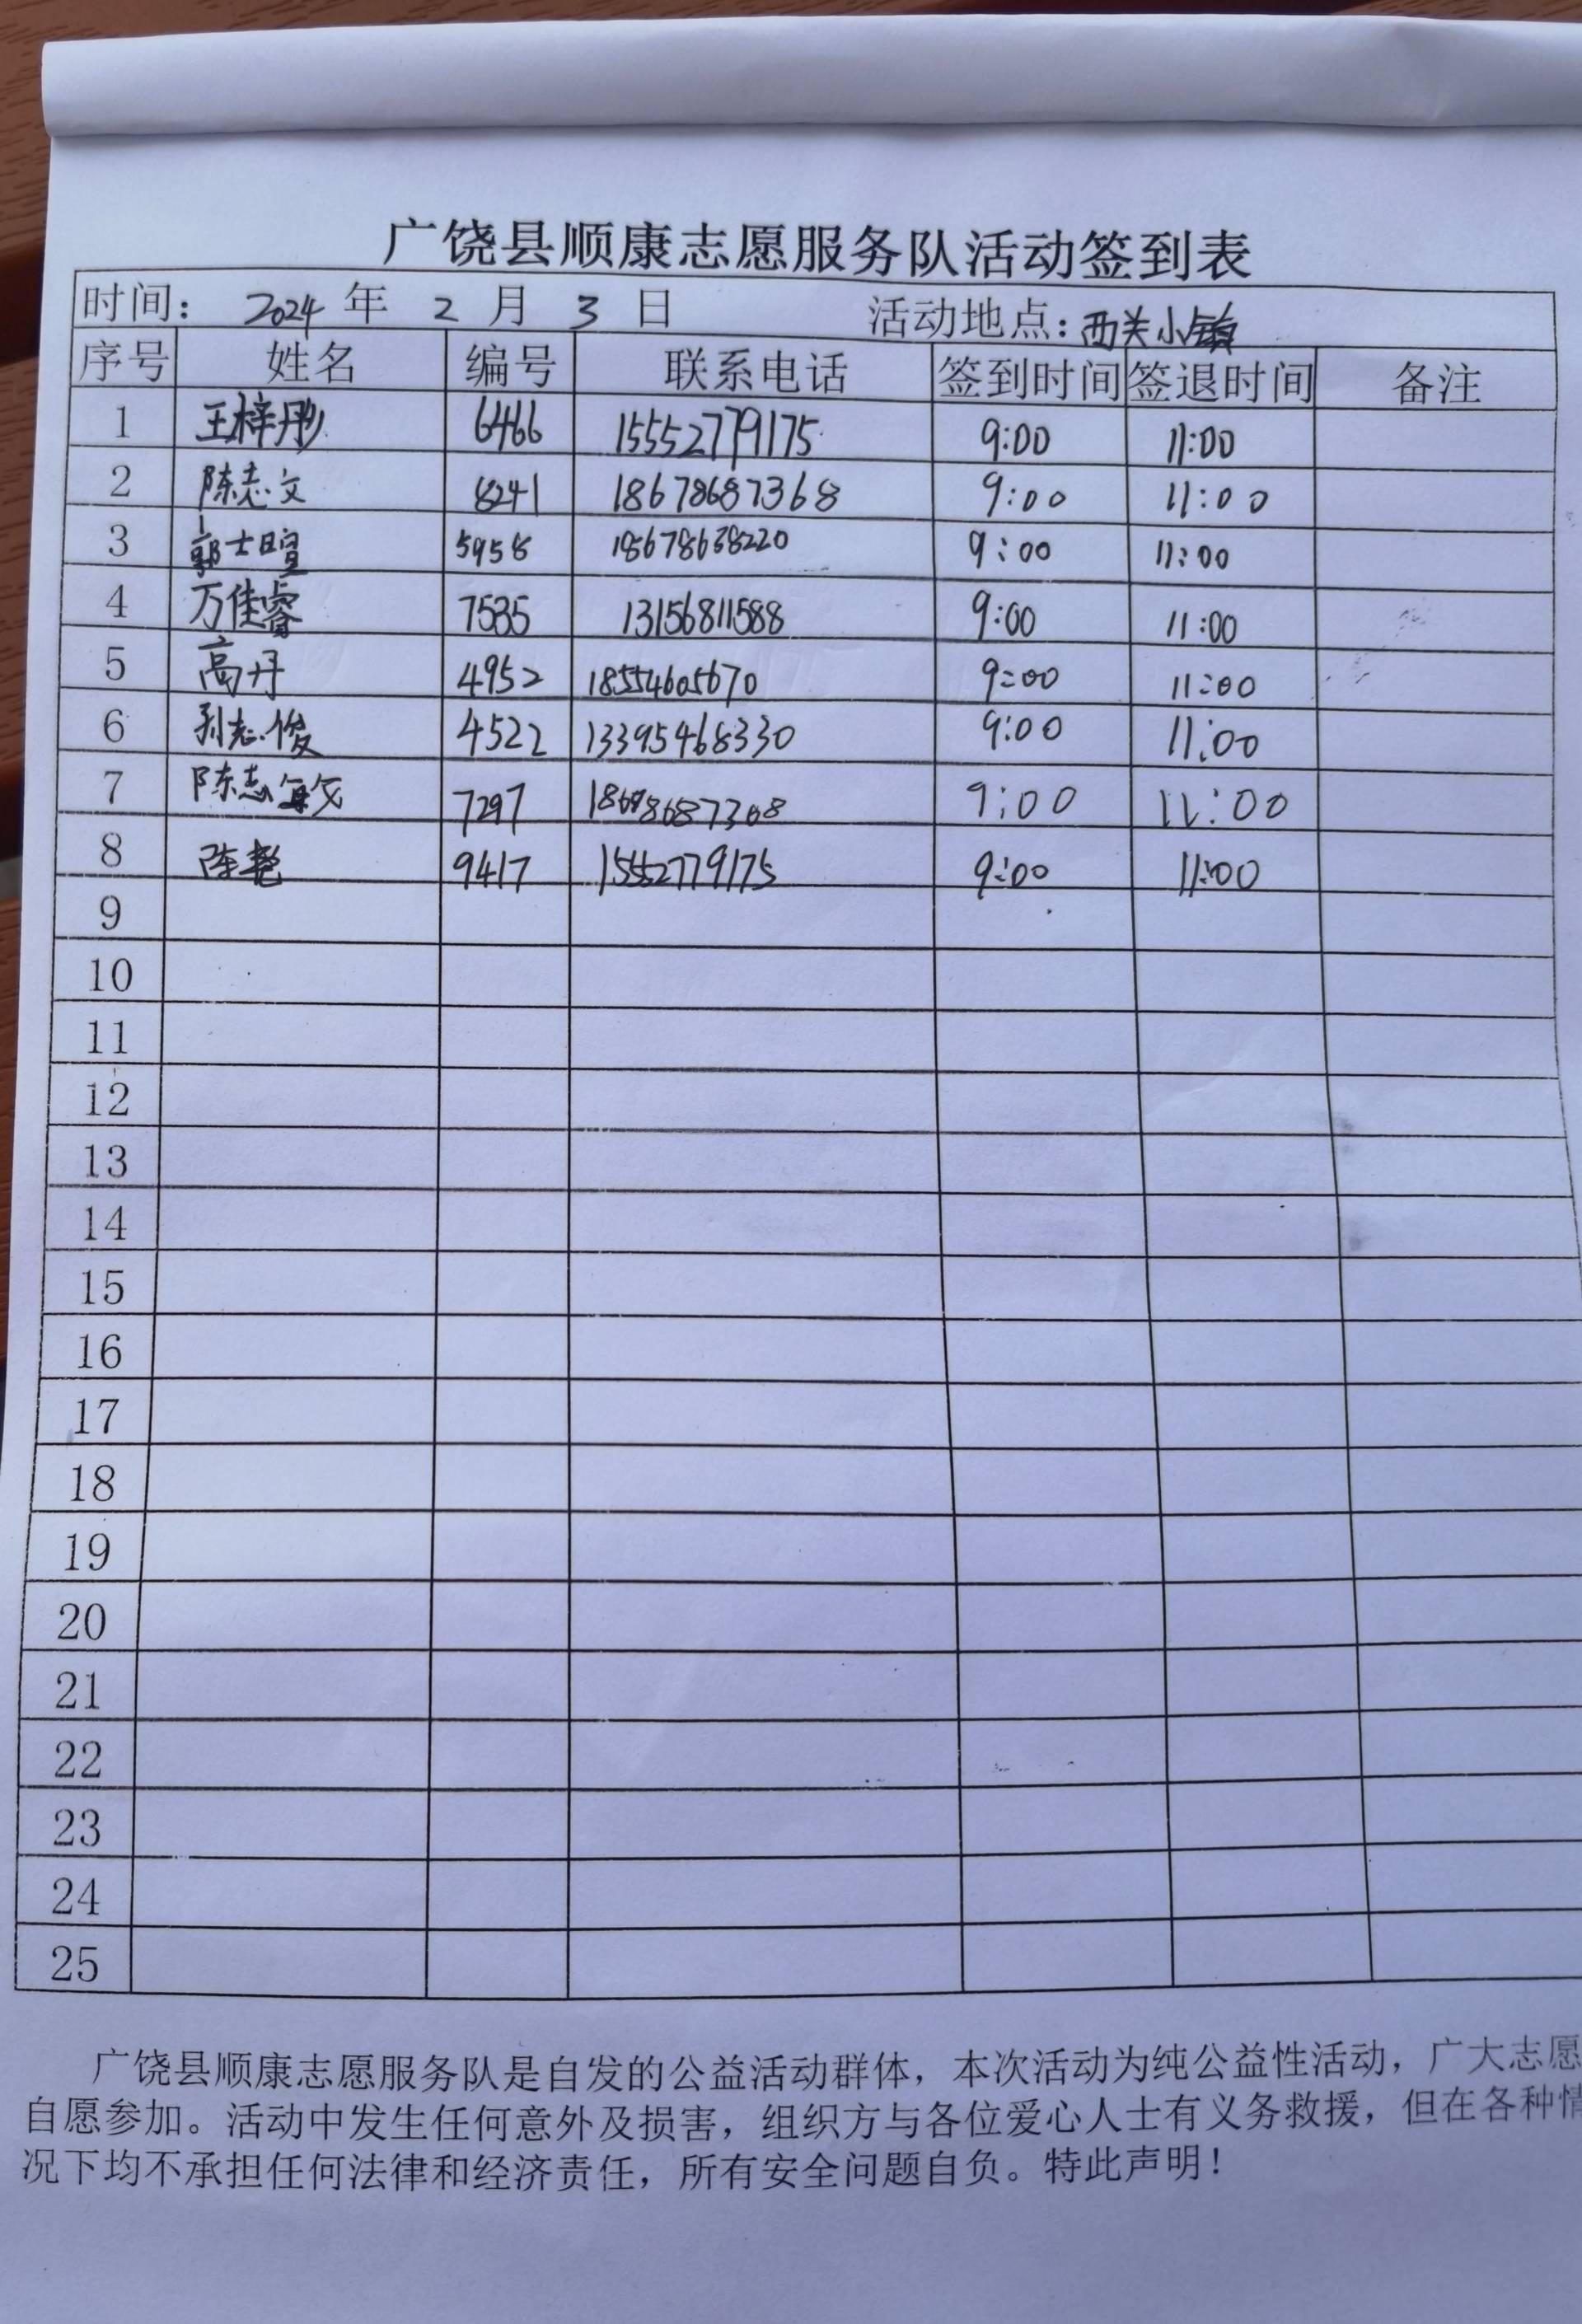 广饶县顺康志愿服务队活动签到表
时间： 2024 年 2 月 3 日 活动地点：西关小镇
序号 姓名 编号 联系电话 签到时间 签退时间 备注
1 王梓彤 6466 15552779175 9:00 11:00
2 陈志文 8241 18678687368 9:00 11:00
3 郭士暄 5958 18678638220 9:00 11:00
4 万佳睿 7535 13156811588 9:00 11:00
5 高丹 4952 18554605670 9:00 11:00
6 孙志俊 4522 13395468330 9:00 11:00
7 陈志敏 7297 9:00 11:00
8 陈艳 9417 15552779175 9:00 11:00
9
10
11
12
13
14
15
16
17
18
19
20
21
22
23
24
25
广饶县顺康志愿服务队是自发的公益活动群体，本次活动为纯公益性活动，广大志愿
自愿参加。活动中发生任何意外及损害，组织方与各位爱心人士有义务救援，但在各种情
况下均不承担任何法律和经济责任，所有安全问题自负。特此声明！